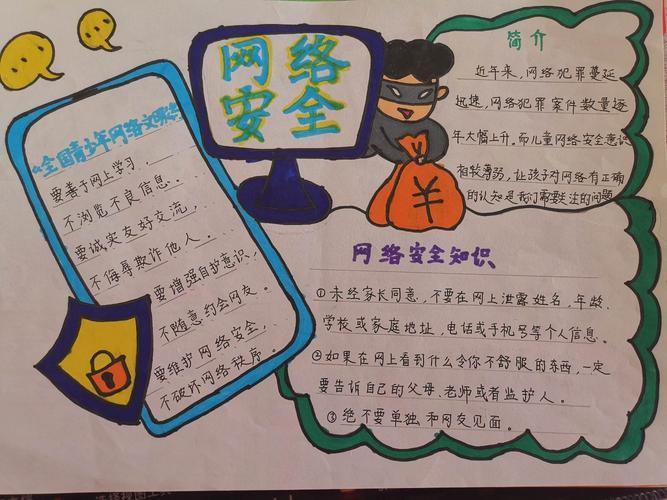 网络
安全
简介
近年来,网络犯罪蔓延
迅速,网络犯罪案件数量逐
年大幅上升。而儿童网络安全意识
相较薄弱,让孩子对网络有正确
的认知是我们需要关注的问题
《全国青少年网络文明公约》
要善于网上学习,
不浏览不良信息。
要诚实友好交流,
不侮辱欺诈他人。
要增强自护意识,
不随意约会网友。
要维护网络安全,
不破坏网络秩序。
¥
网络安全知识
①未经家长同意,不要在网上泄露姓名,年龄,
学校或家庭地址,电话或手机号等个人信息。
②如果在网上看到什么令你不舒服的东西,一定
要告诉自己的父母、老师或者监护人。
③绝不要单独和网友见面。